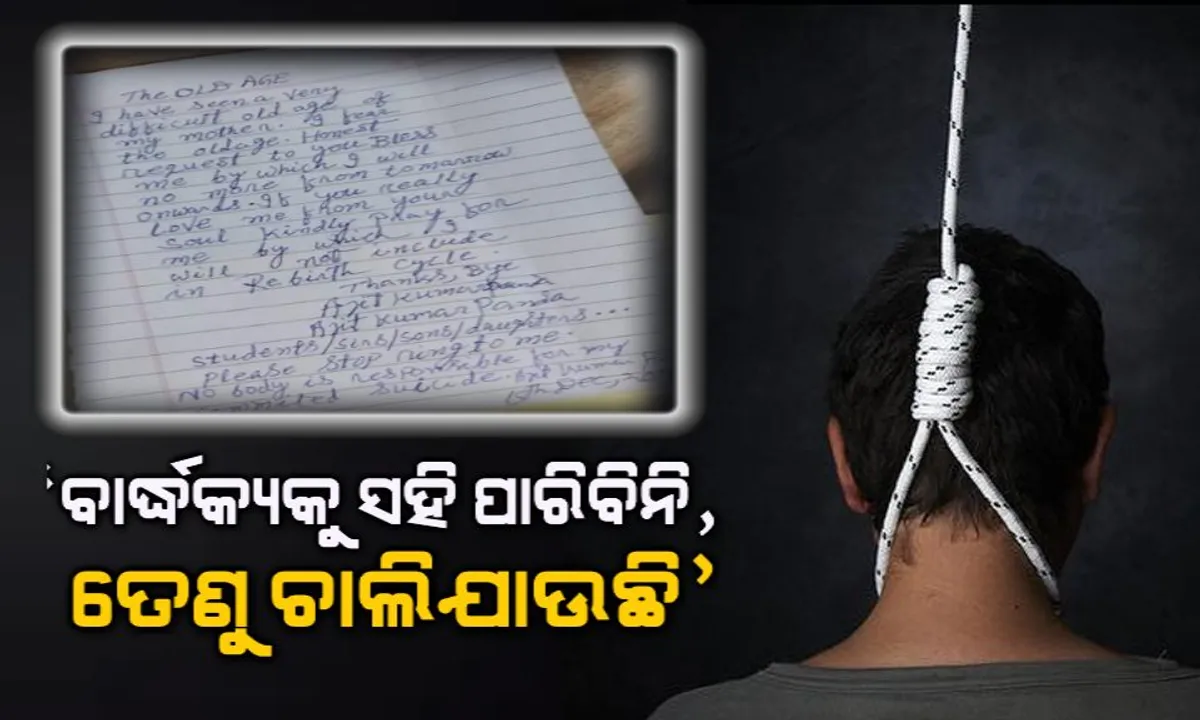 The OLD AGE
I have seen a very
difficult old age of
my mother. I fear
the oldage. Honest
request to you Bless
me by which I will
no more from tomorrow
onwards. If you really
Love me from your
soul kindly Pray for
me by which I
will not include
in Rebirth cycle.
Thanks, Bye
Ajit Kumar Panda
Ajit Kumar Panda
students/sirs/sons/daughters...
Please stop rung to me.
No body is responsable for my
committed suicide.
Dec,
‘ବାର୍ଦ୍ଧକ୍ୟକୁ ସହି ପାରିବିନି,
ତେଣୁ ଚାଲିଯାଉଛି’